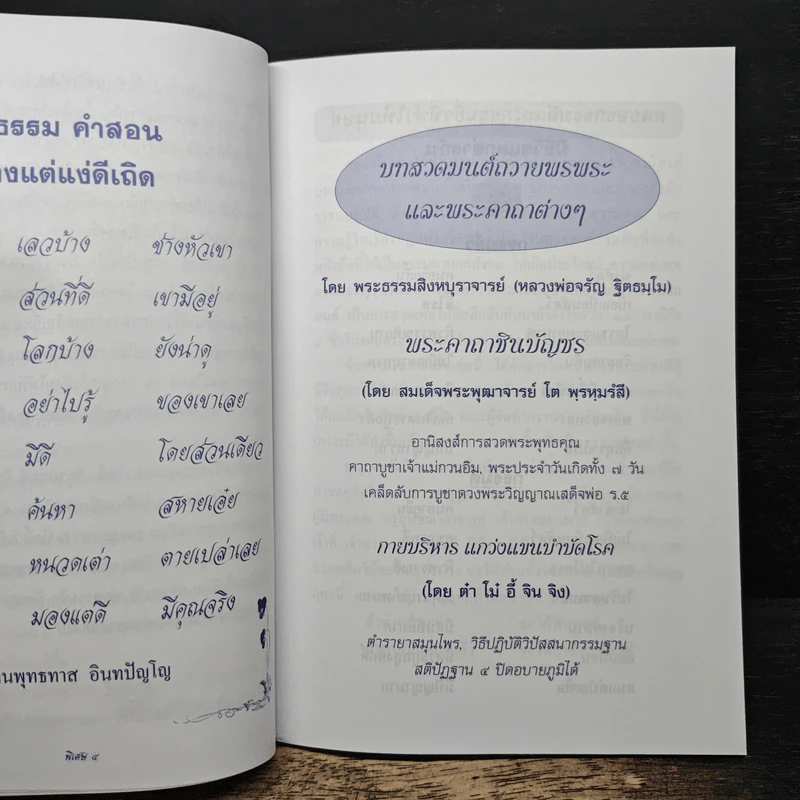 ธรรม คำสอน
งแต่แง่ดีเถิด
เลวบ้าง ช่างหัวเขา
ส่วนที่ดี เขามีอยู่
โลกบ้าง ยังน่าดู
อย่าไปรู้ ของเขาเลย
มีดี โดยส่วนเดียว
ค้นหา สหายเอ๋ย
หนวดเต่า ตายเปล่าเลย
มองแต่ดี มีคุณจริง
นพุทธทาส อินทปัญโญ
พิเศษ ๔
บทสวดมนต์ถวายพรพระ
และพระคาถาต่างๆ
โดย พระธรรมสิงหบุราจารย์ (หลวงพ่อจรัญ ฐิตธมฺโม)
พระคาถาชินบัญชร
(โดย สมเด็จพระพุฒาจารย์ โต พฺรหฺมรํสี)
อานิสงส์การสวดพระพุทธคุณ
คาถาบูชาเจ้าแม่กวนอิม, พระประจำวันเกิดทั้ง ๗ วัน
เคล็ดลับการบูชาดวงพระวิญญาณเสด็จพ่อ ร.๕
กายบริหาร แกว่งแขนบำบัดโรค
(โดย ต๋า โม๋ อี้ จิน จิง)
ตำรายาสมุนไพร, วิธีปฏิบัติวิปัสสนากรรมฐาน
สติปัฏฐาน ๔ ปิดอบายภูมิได้